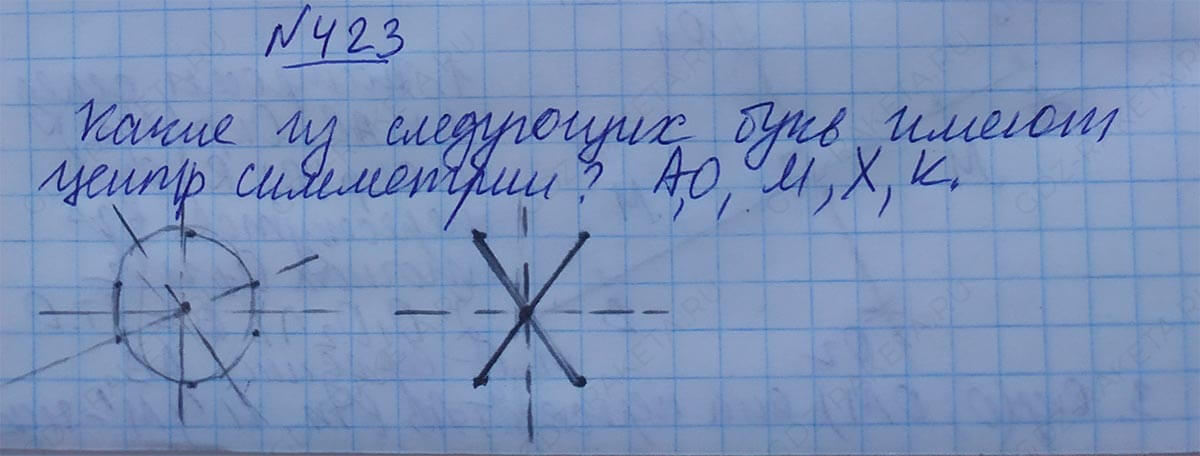 N423
Какие из следующих букв имеют
центр симметрии? А,О, М, Х, К.